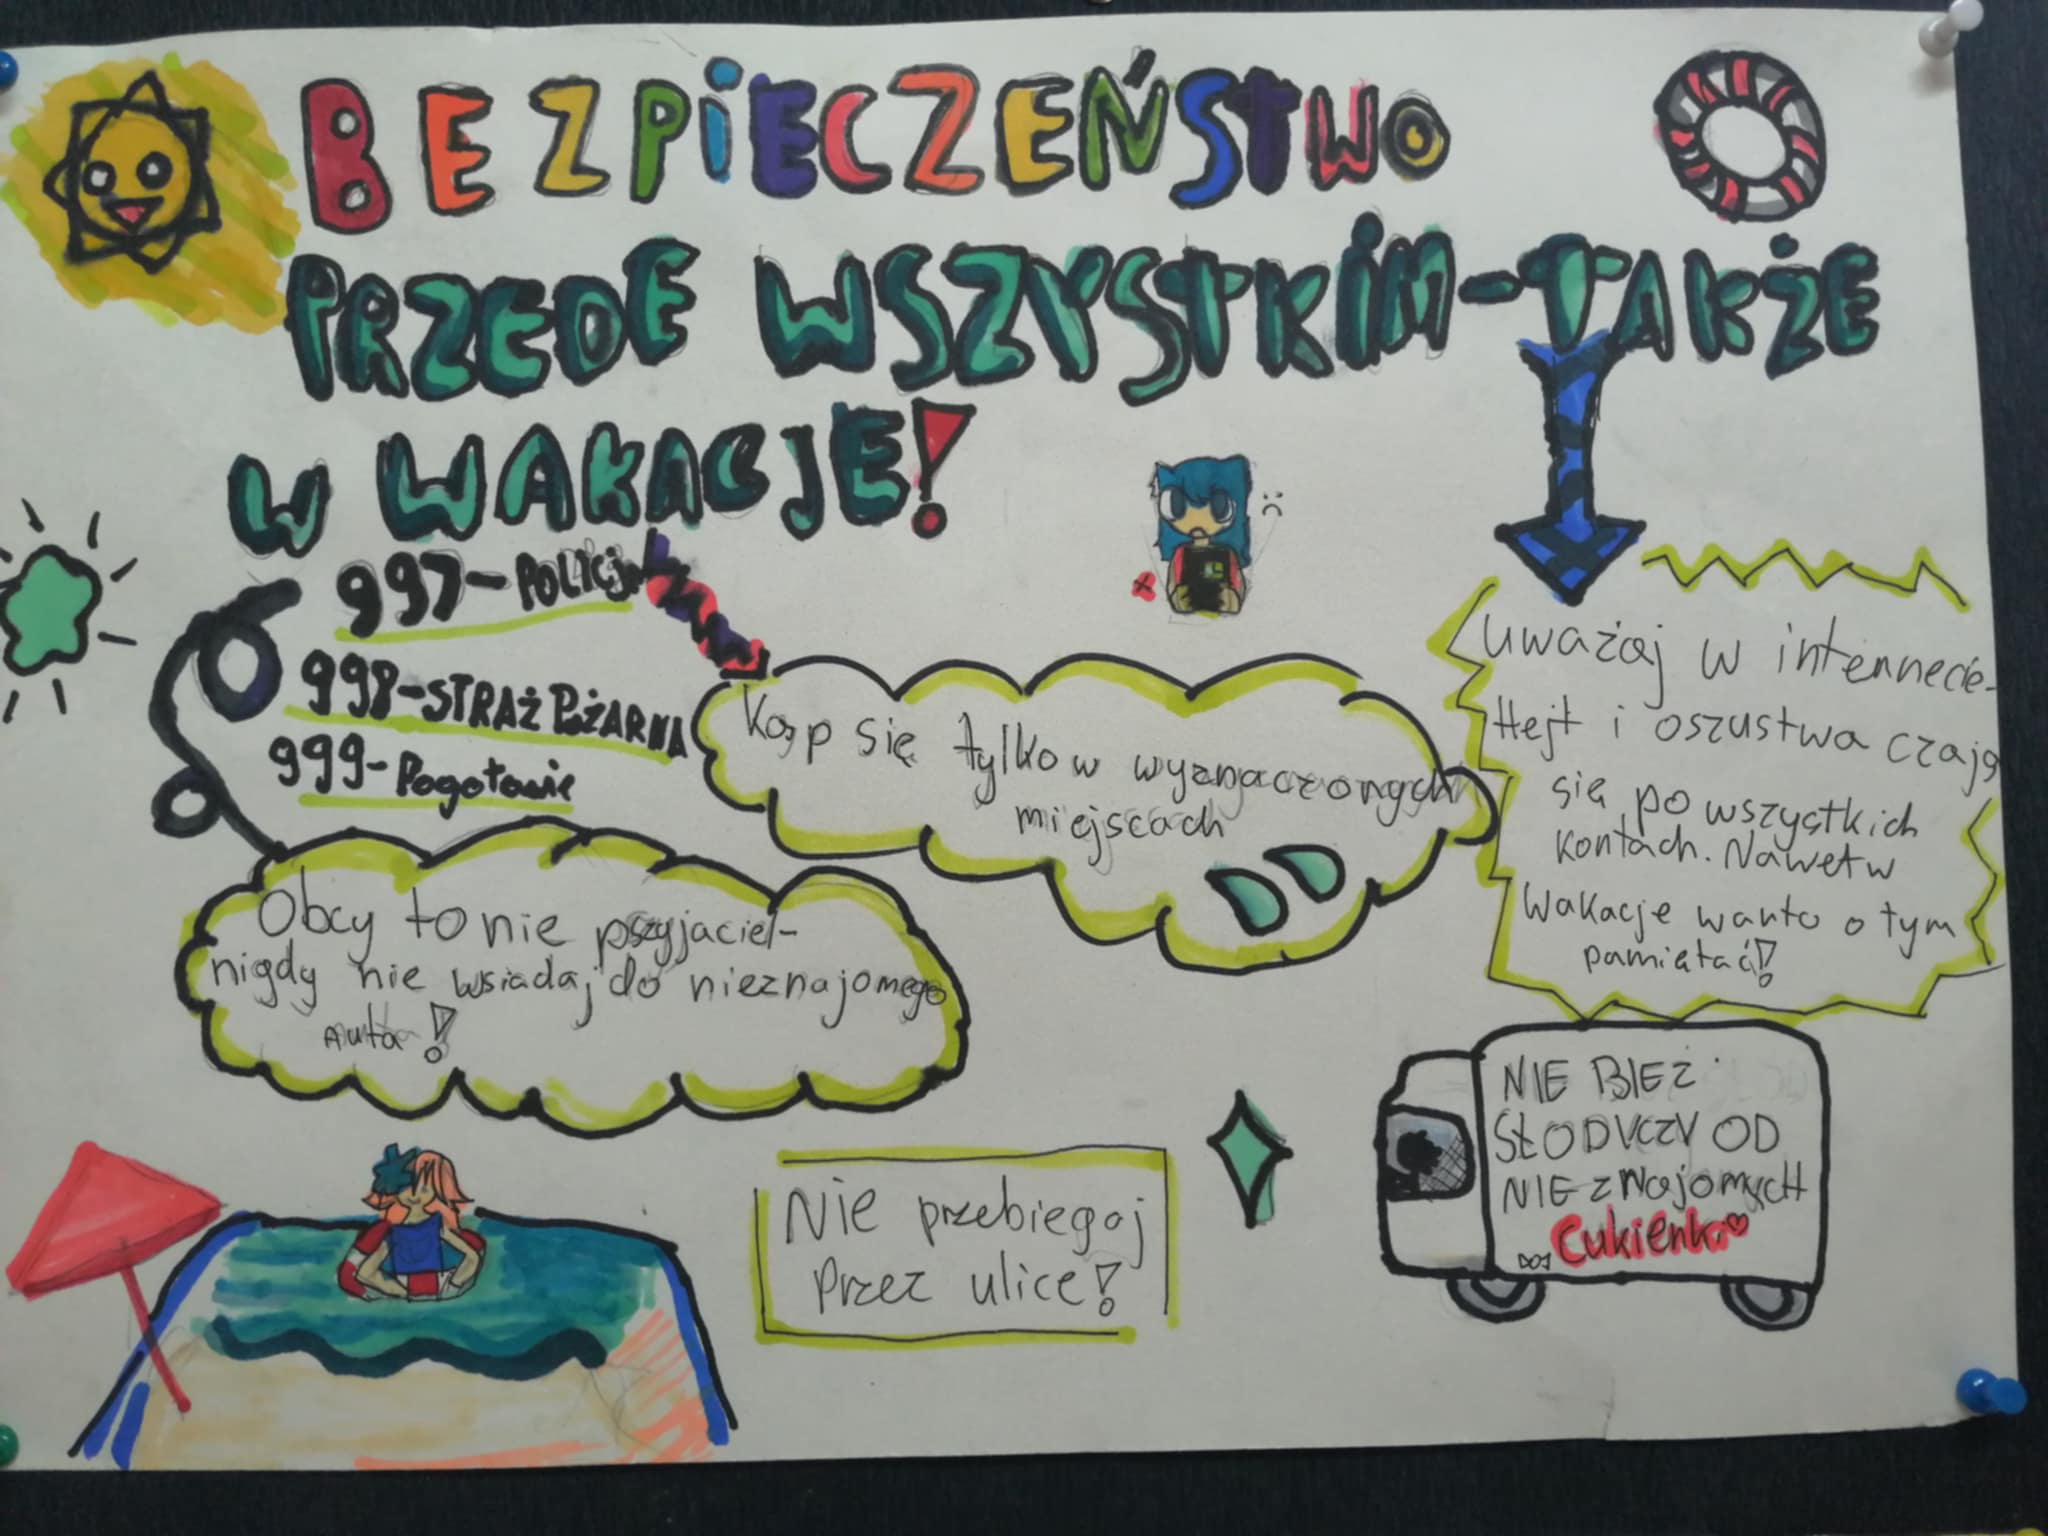 BEZPIECZEŃSTWO
PRZEDE WSZYSTKIM-TAKŻE
W WAKACJE!
997-POLICJA
998-STRAŻ POŻARNA
999-Pogotowie
Kąp się tylko w wyznaczonych
miejscach
Uważaj w internecie-
Hejt i oszustwa czają
się po wszystkich
kontach. Nawet w
Wakacje warto o tym
pamiętać!
Obcy to nie przyjaciel-
nigdy nie wsiadaj do nieznajomego
Auta!
Nie przebiegaj
przez ulice!
NIE BIEŻ
SŁODYCZY OD
NIEZNAjOMYCH
Cukierki